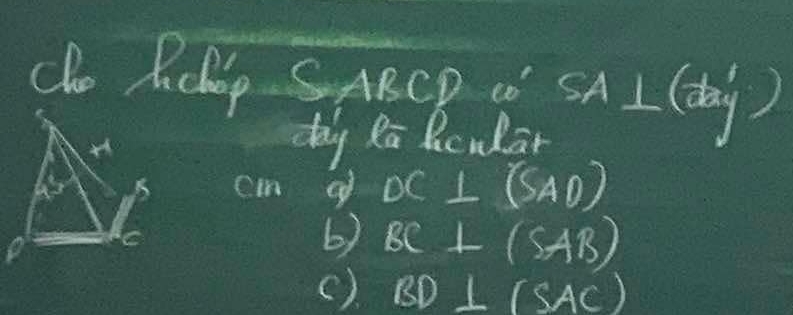 Cho h.chóp SABCD có SA ⊥ (đáy)
đáy là hcnhật
cm a) DC ⊥ (SAD)
b) BC ⊥ (SAB)
c). BD ⊥ (SAC)
S
B
D
C